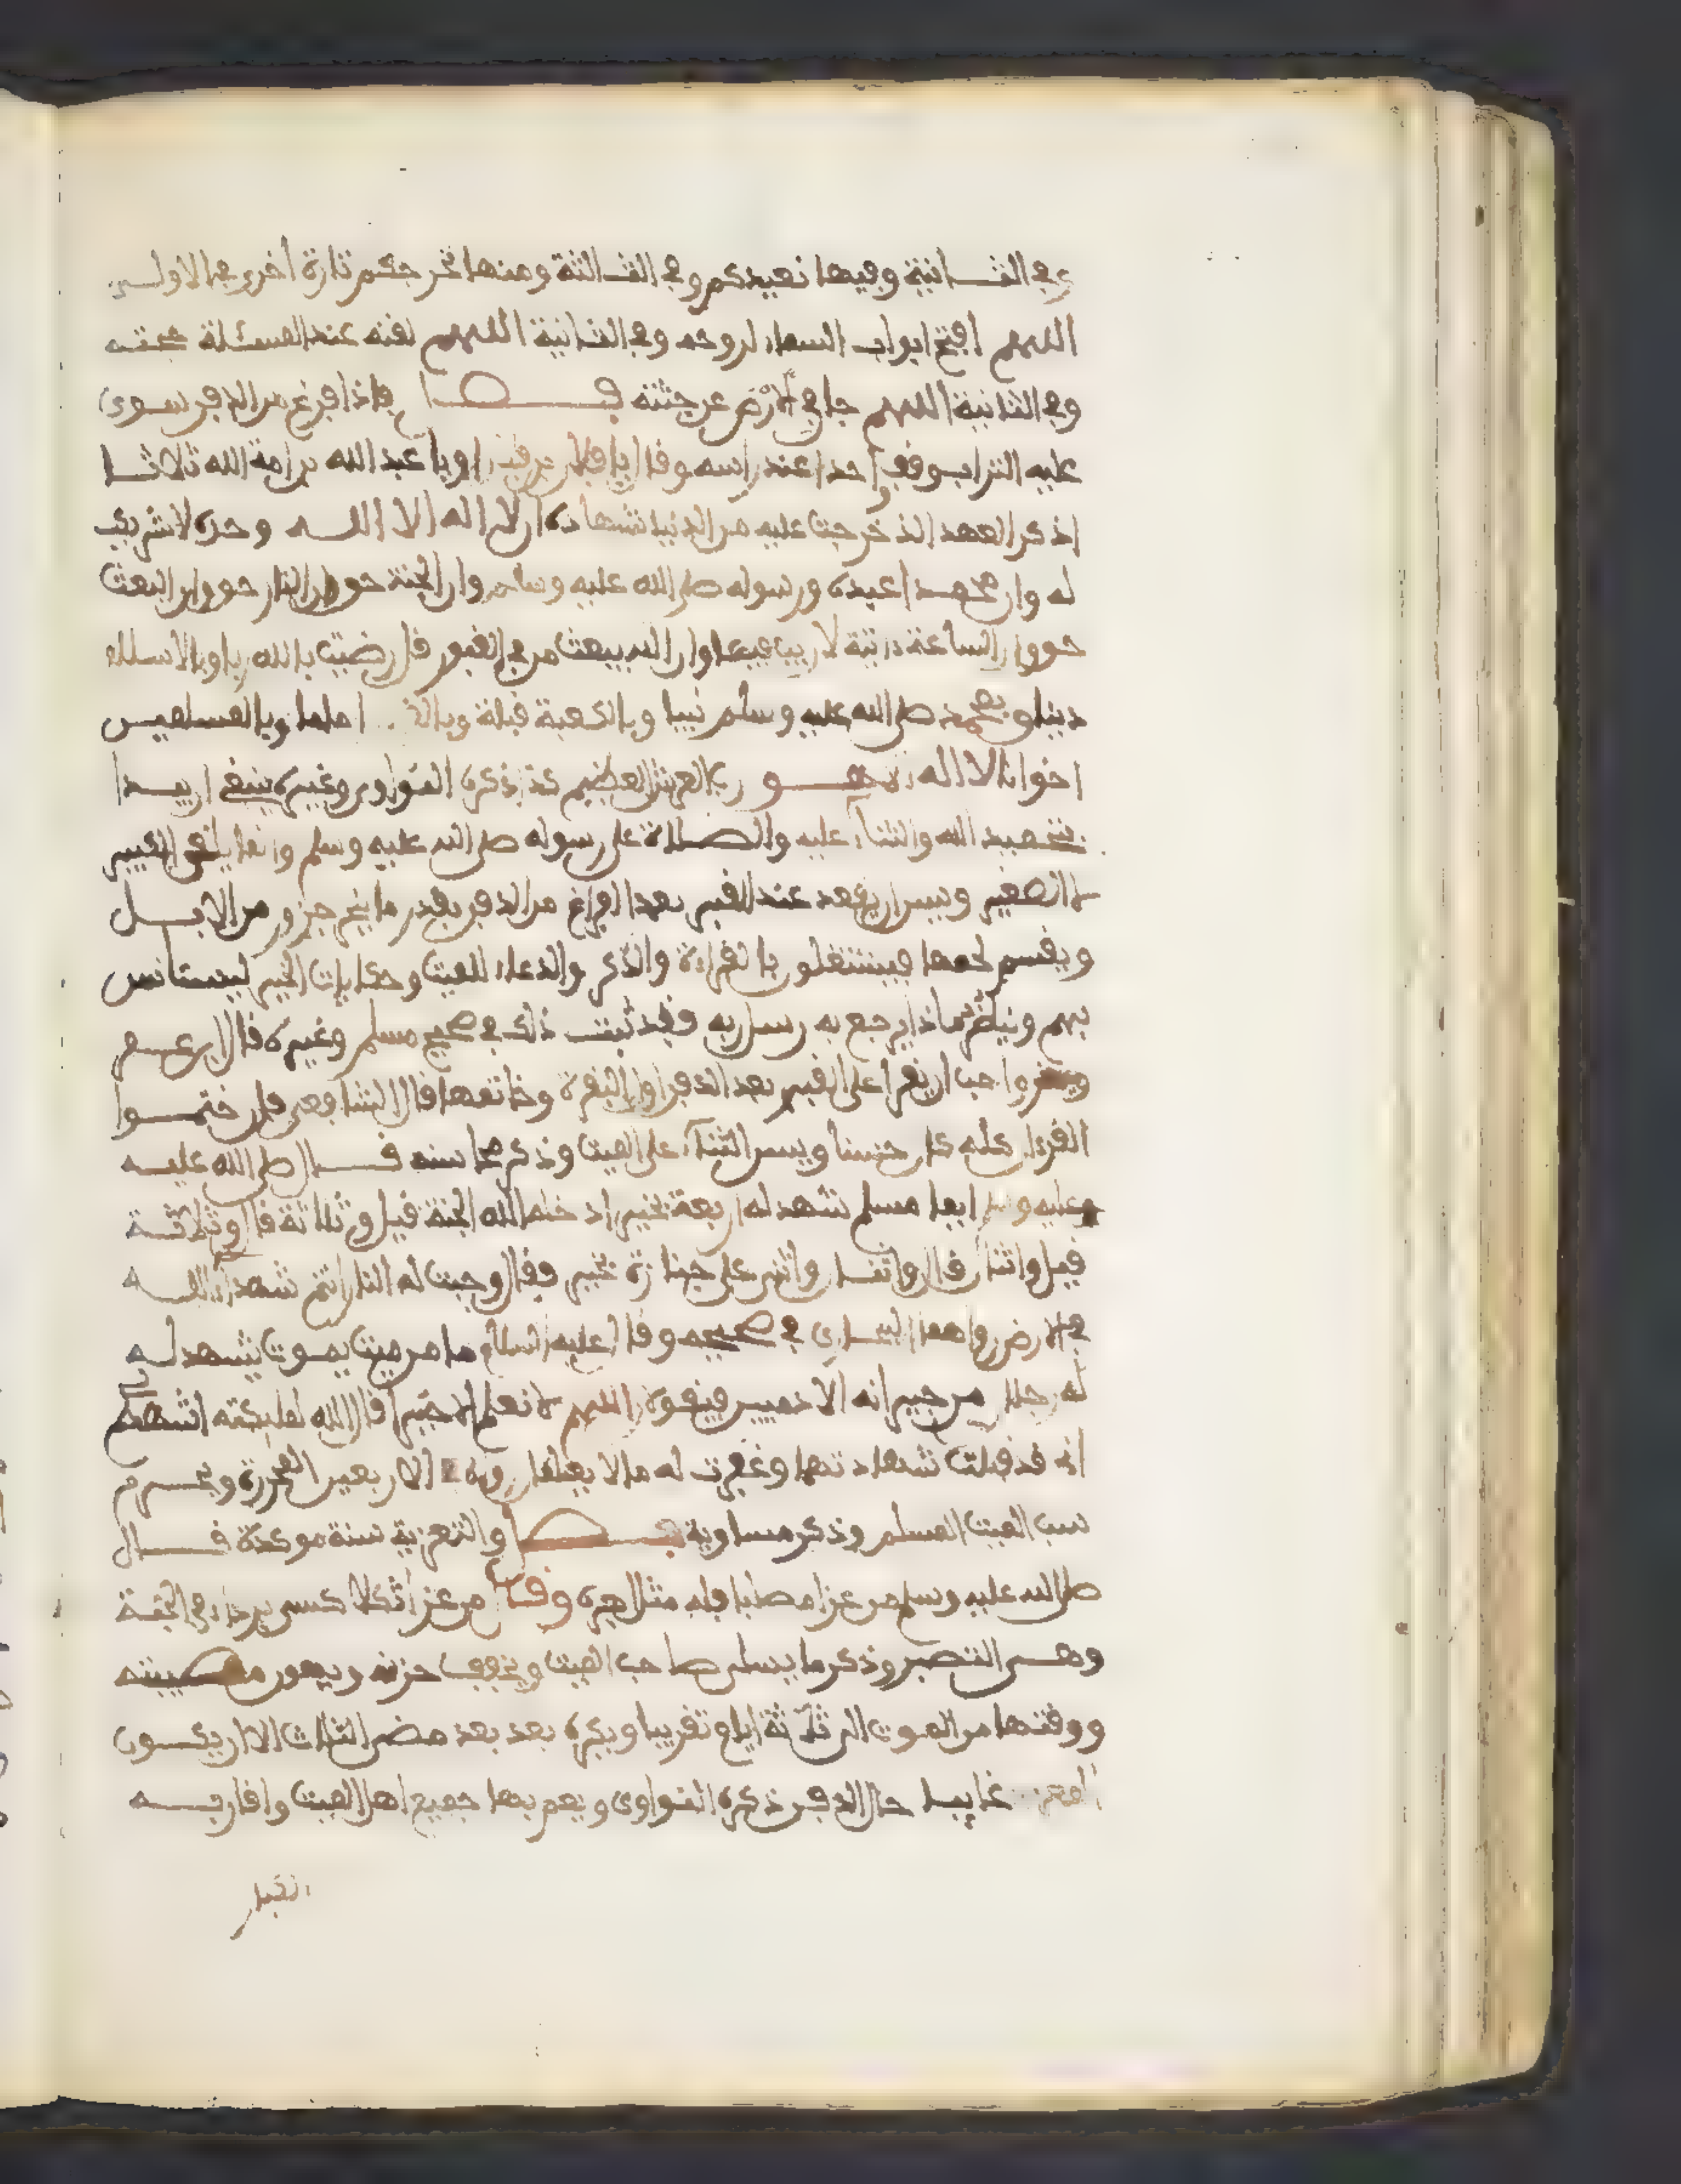 وفي الثـانية وفيها نعيدكم وفي الثـالثة ومنها نخرجكم تارة أخرى في الاولى
اللهم افتح ابواب السماء لروحه وفي الثانية اللهم لقنه عند المسئلة حجته
وفي الثانية اللهم جافي الارض عن جثته فصـل فاذا فرغ من الدفن سوى
عليه التراب وقف احد عند راسه وقال يا فلان بن او يا عبد الله بن امة الله ثلاثا
اذكر العهد الذ خرجت عليه من الدنيا شهادة ان لا اله الا اللـه وحده لا شريك
له وان محمدا عبده ورسوله صلى الله عليه وسلم وان الجنة حق وان النار حق وان البعث
حق وان الساعة اتية لا ريب فيها وان الله يبعث من في القبور قل رضيت بالله ربا وبالاسلام
دينا وبمحمد صلى الله عليه وسلم نبيا وبالكعبة قبلة اماما وبالمسلمين
اخوانا لا اله الا هـو رب العرش العظيم كذا ذكره النواوى وغيره ينبغي ان يبـدا
بتحميد الله والثناء عليه والصـلاة على رسوله صلى الله عليه وسلم وانما يلقن الكبير
لا الصغير ويسن ان يقعد عند القبر بعد الفراغ من الدفن بقدر ما ينحر جزور من الابـل
ويقسم لحمها فيشتغلون بالقراءة والذكر والدعاء للميت وحكايات الخير ليستانس
بهم وينظر ماذا يرجع به رسل ربه فقد ثبت ذلك في صحيح مسلم وغيره قال ابن عـمر
واحب ان يقرا على القبر بعد الدفن اول البقرة وخاتمها قال الشافعي فان ختمـوا
القرءان كله كان حسنا ويسن الثناء على الميت وذكر محاسنه قـال صلى الله عليـه
وعليه ايما مسلم شهد له اربعة بخير ادخله الله الجنة قيل وثلاثة قال وثلاثـة
قيل واثنان قال واثنـان واثنى على جنازة بخير فقال وجبت له النار انتم شهداء اللـه
في الارض رواهما في صحيحه وقال عليه السلام ما من ميت يموت يشهد لـه
له رجلان من جيرانه الادنيين فيقولان اللهم لا نعلم الا خيرا قال الله لملئكته اشهدكم
اني قد قبلت شهادتهما وغفرت له ما لا يعلمان الاربعين المحررة ويحـرم
سب الميت المسلم وذكر مساوية فصـل والتعزية سنة موكدة قـال
صلى الله عليه وسلم من عزا مصابا فله مثل اجره وقال من عزا ثكلا كسى برداء في الجنة
وهـى التصبر وذكر ما يسلى صاحب الميت ويخفف حزنه ويهون مصيبته
ووقتها من الموت الى ثلاثة ايام تقريبا ويكره بعد بعد مضى الثلاث الا ان يكـون
المعزى غايبـا حال الدفن ذكره النواوى ويعم بها جميع اهل الميت واقاربـه